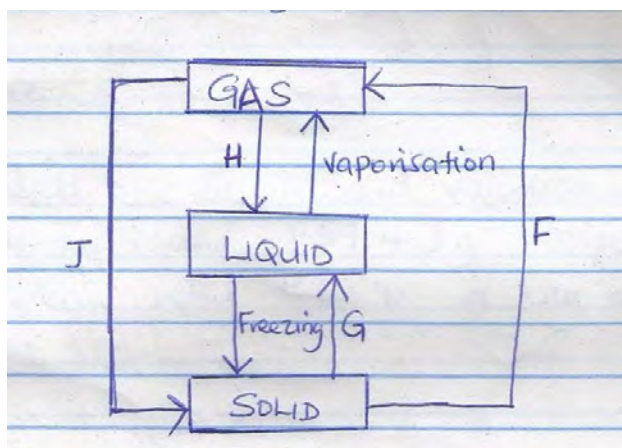 GAS
H vaporisation
LIQUID
J F
Freezing G
SOLID